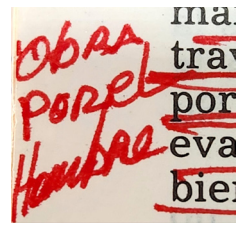 Obra
por el
Hombre
mai
trav
por
eva
bien